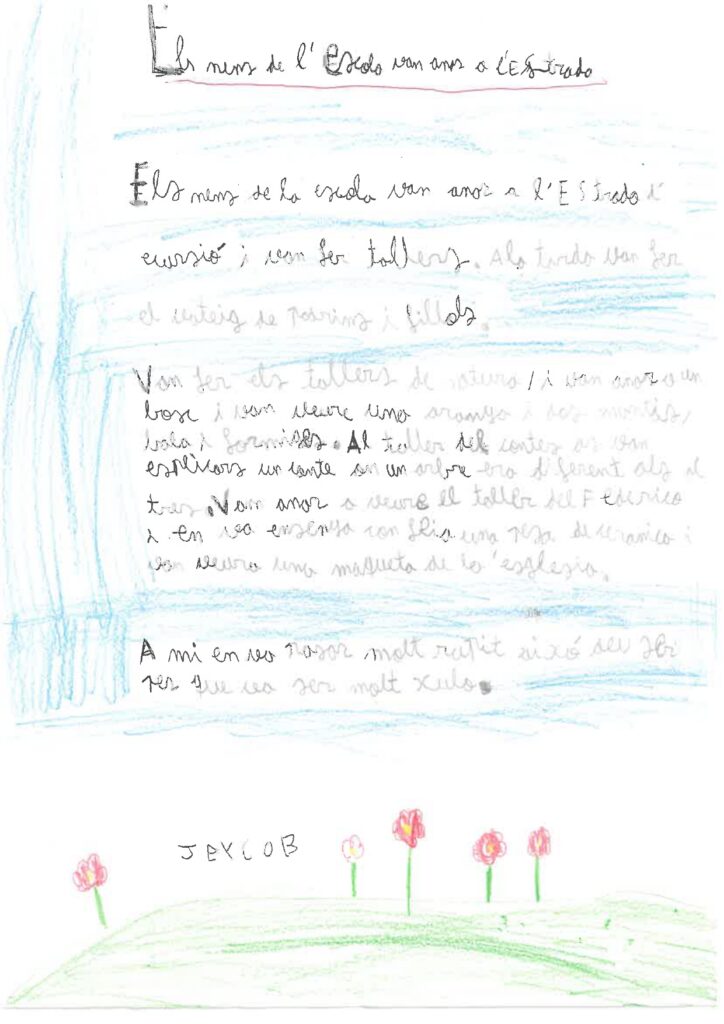 Els nens de l'Escola van anar a l'Estrada
Els nens de la escola van anar a l'Estrada d'
excursió i van fer tallers. A la tarda van fer
el sorteig de padrins i fillols.
Van fer els tallers de natura, i van anar a un
bosc i van veure una aranya i dos mortis,
bala i formigues. Al taller del contes as van
esplicars un conte en un arbre era diferent als al
tres. Vam anar a veure el taller del Federico
i en va ensenya con feia una pesa de ceramica i
van veura una maqueta de la esglesia.
A mi en va pasar molt rapit això deu ser
per que va ser molt xulo.
JEYCOB